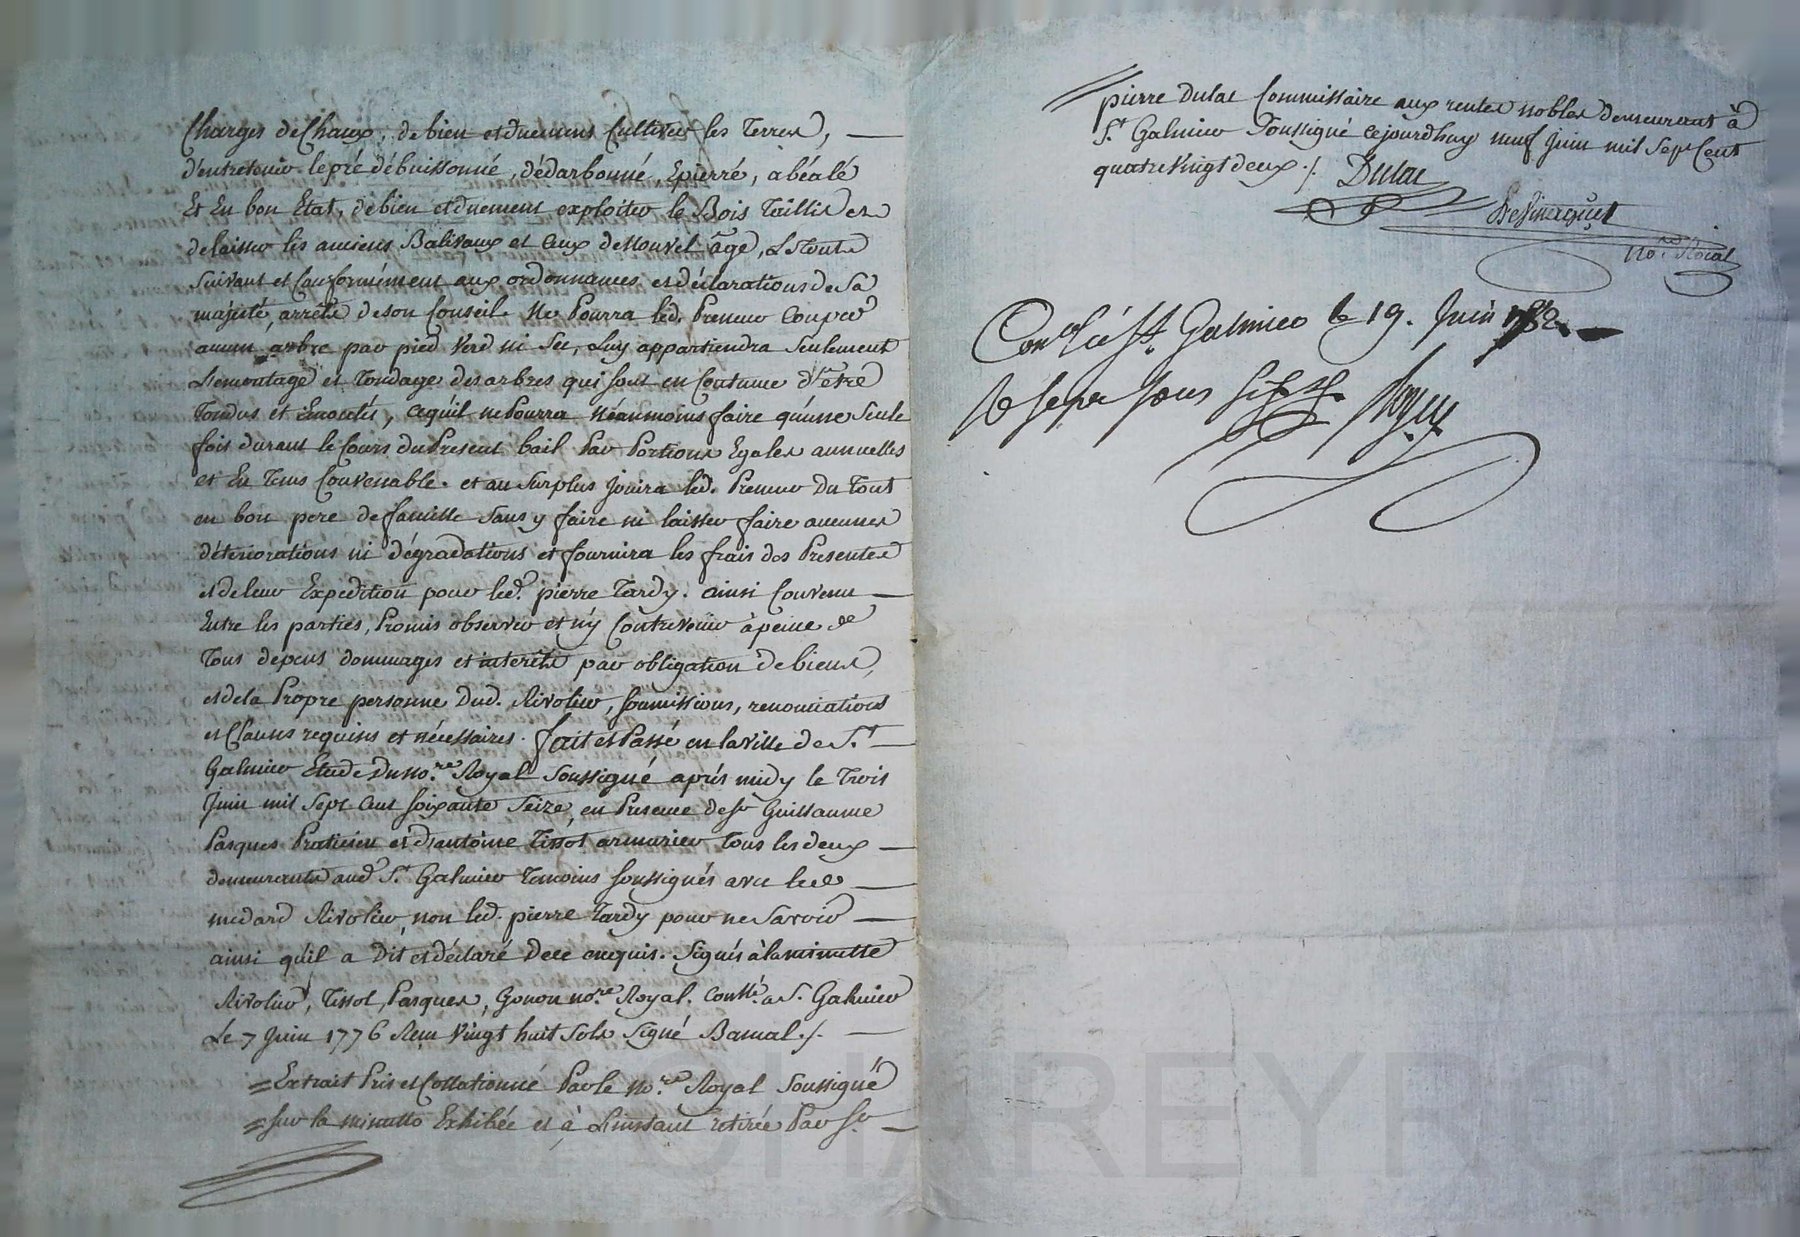 Charges de Chaux, de bien et duement Cultiver les Terres,
d'entretenir le pré débuissonné, dédarbonné, Epierré, abéalé
Et En bon Etat, de bien et duement exploiter le Bois Taillis et
delaisser les anciens Balivaux et ceux de Nouvel âge, Le Tout
Suivant et Conformément aux ordonnances et déclarations de Sa
májesté, arrêts de son Conseil. Ne Pourra led. Preneur Couper
aucun arbre par pied Verd ni Sec, Luy appartiendra Seulement
L'émontage et Tondage des arbres qui sont en Coutume d'être
Tondus et Emontés, ce qu'il ne Pourra Néanmoins faire qu'une Seule
fois durant le Cours du Présent bail Par Portions Egales annuelles
et En Tems Convenable. et au Surplus Jouira led. Preneur Du Tout
en bon pere de famille Sans y faire ni laisser faire aucunes
détériorations ni dégradations et fournira les frais des Présentes
et de leur Expédition pour led. pierre Tardy. ainsi Convenu
Entre les parties, Promis observer et n'y Contrevenir à peine de
Tous depens dommages et interêts par obligation de biens,
et de la Propre personne Dud. Rivolier, soumissions, renonciations
et Clauses requises et nécessaires. fait et Passé en la ville de St.
Galmier Etude Du no.re Royal Soussigné après midy le Trois
Juin mil Sept cent soixante Seize, en Présence de Sr Guillaume
Pasques Praticien et d'antoine Tissot armurier Tous les deux
demeurants aud. St. Galmier Temoins soussignés avec led.
médard Rivolier, non led. pierre Tardy pour ne Savoir
ainsi qu'il a Dit et déclaré De ce enquis. Signés à la minutte
Rivolier, Tissot, Pasques, Gonon no.re Royal. Conllé. a St. Galmier
Le 7 Juin 1776 Reçu Vingt huit Sols Signé Barual ./.
= Extrait Pris et Collationné Par le no.re Royal Soussigné
= Sur la minutte Exhibée et à L'instant retirée Par Sr
pierre Dulac Commissaire aux rentes nobles demeurant à
St. Galmier Soussigné cejourdhuy neuf Juin mil Sept Cent
quatre Vingt deux ./. Dulac
no.re Roial
Conllé à St. Galmier le 19. Juin 1782